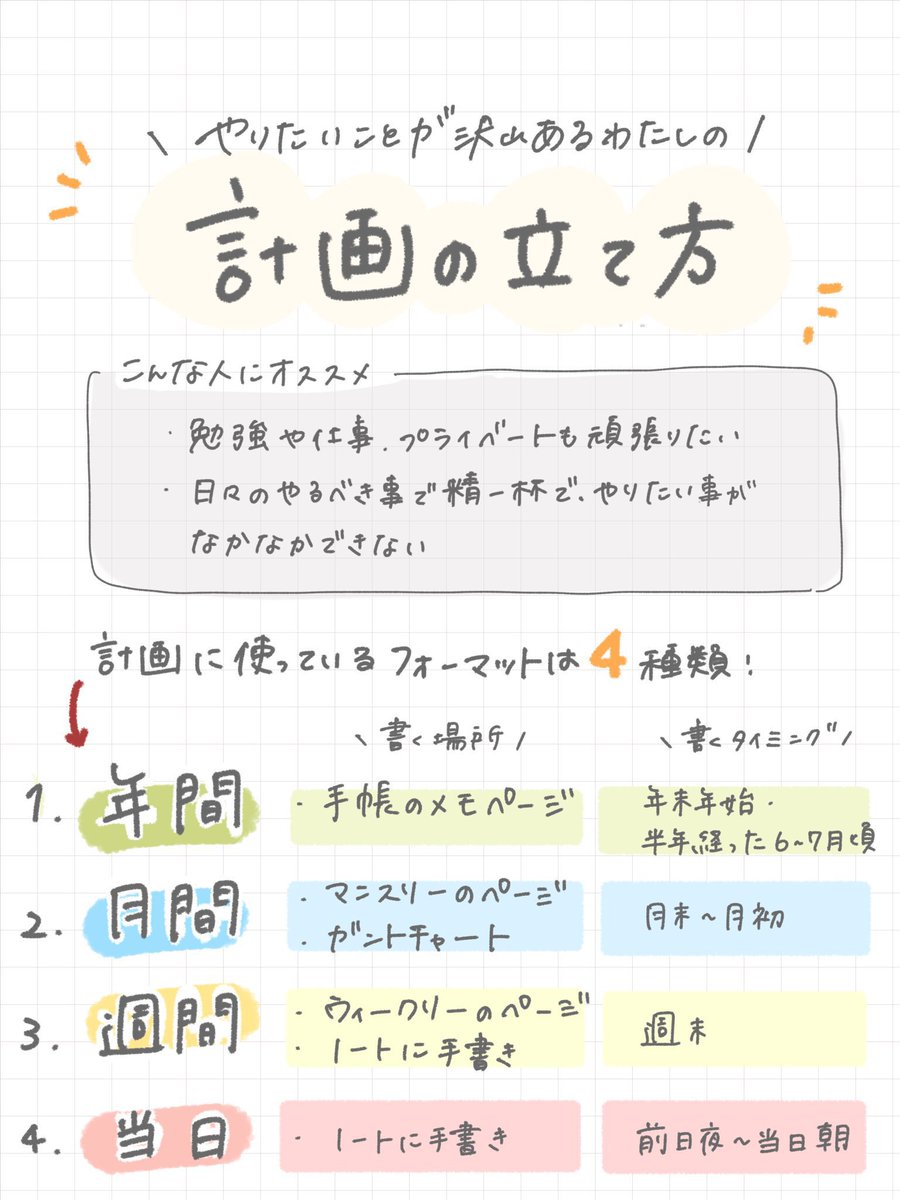 \ やりたいことが沢山あるわたしの /
計画の立て方
こんな人にオススメ
・勉強や仕事、プライベートも頑張りたい
・日々のやるべき事で精一杯で、やりたい事が
なかなかできない
計画に使っているフォーマットは4種類!
\ 書く場所 /
\ 書くタイミング /
1. 年間
・手帳のメモページ
年末年始・
半年経った6~7月頃
2. 月間
・マンスリーのページ
・ガントチャート
月末~月初
3. 週間
・ウィークリーのページ
・ノートに手書き
週末
4. 当日
・ノートに手書き
前日夜~当日朝